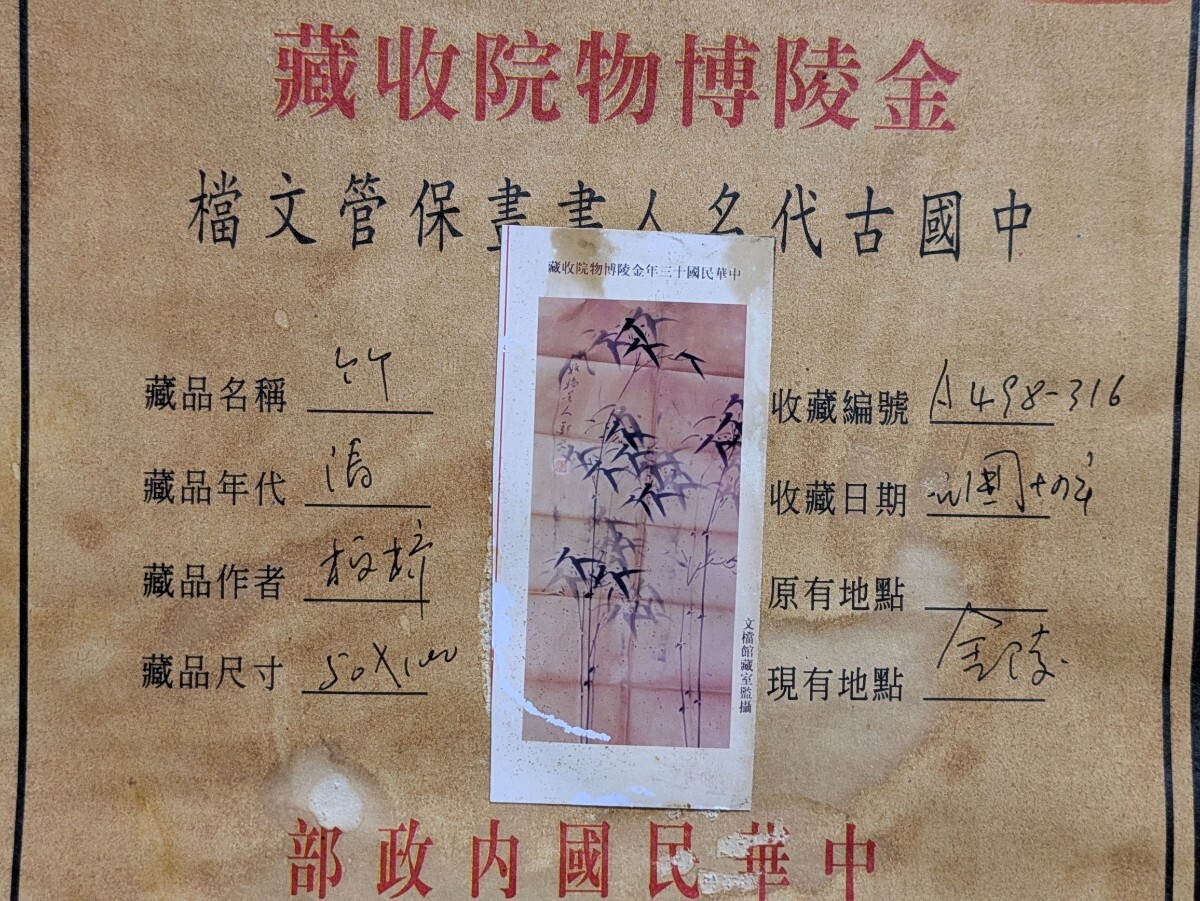 金陵博物院收藏
中國古代名人書畫保管文檔
中華民國十三年金陵博物院收藏
文檔館藏室監攝
藏品名稱 竹
藏品年代 清
藏品作者
藏品尺寸 50X100
收藏編號 A498-316
收藏日期
原有地點
現有地點 金陵
中華民國内政部